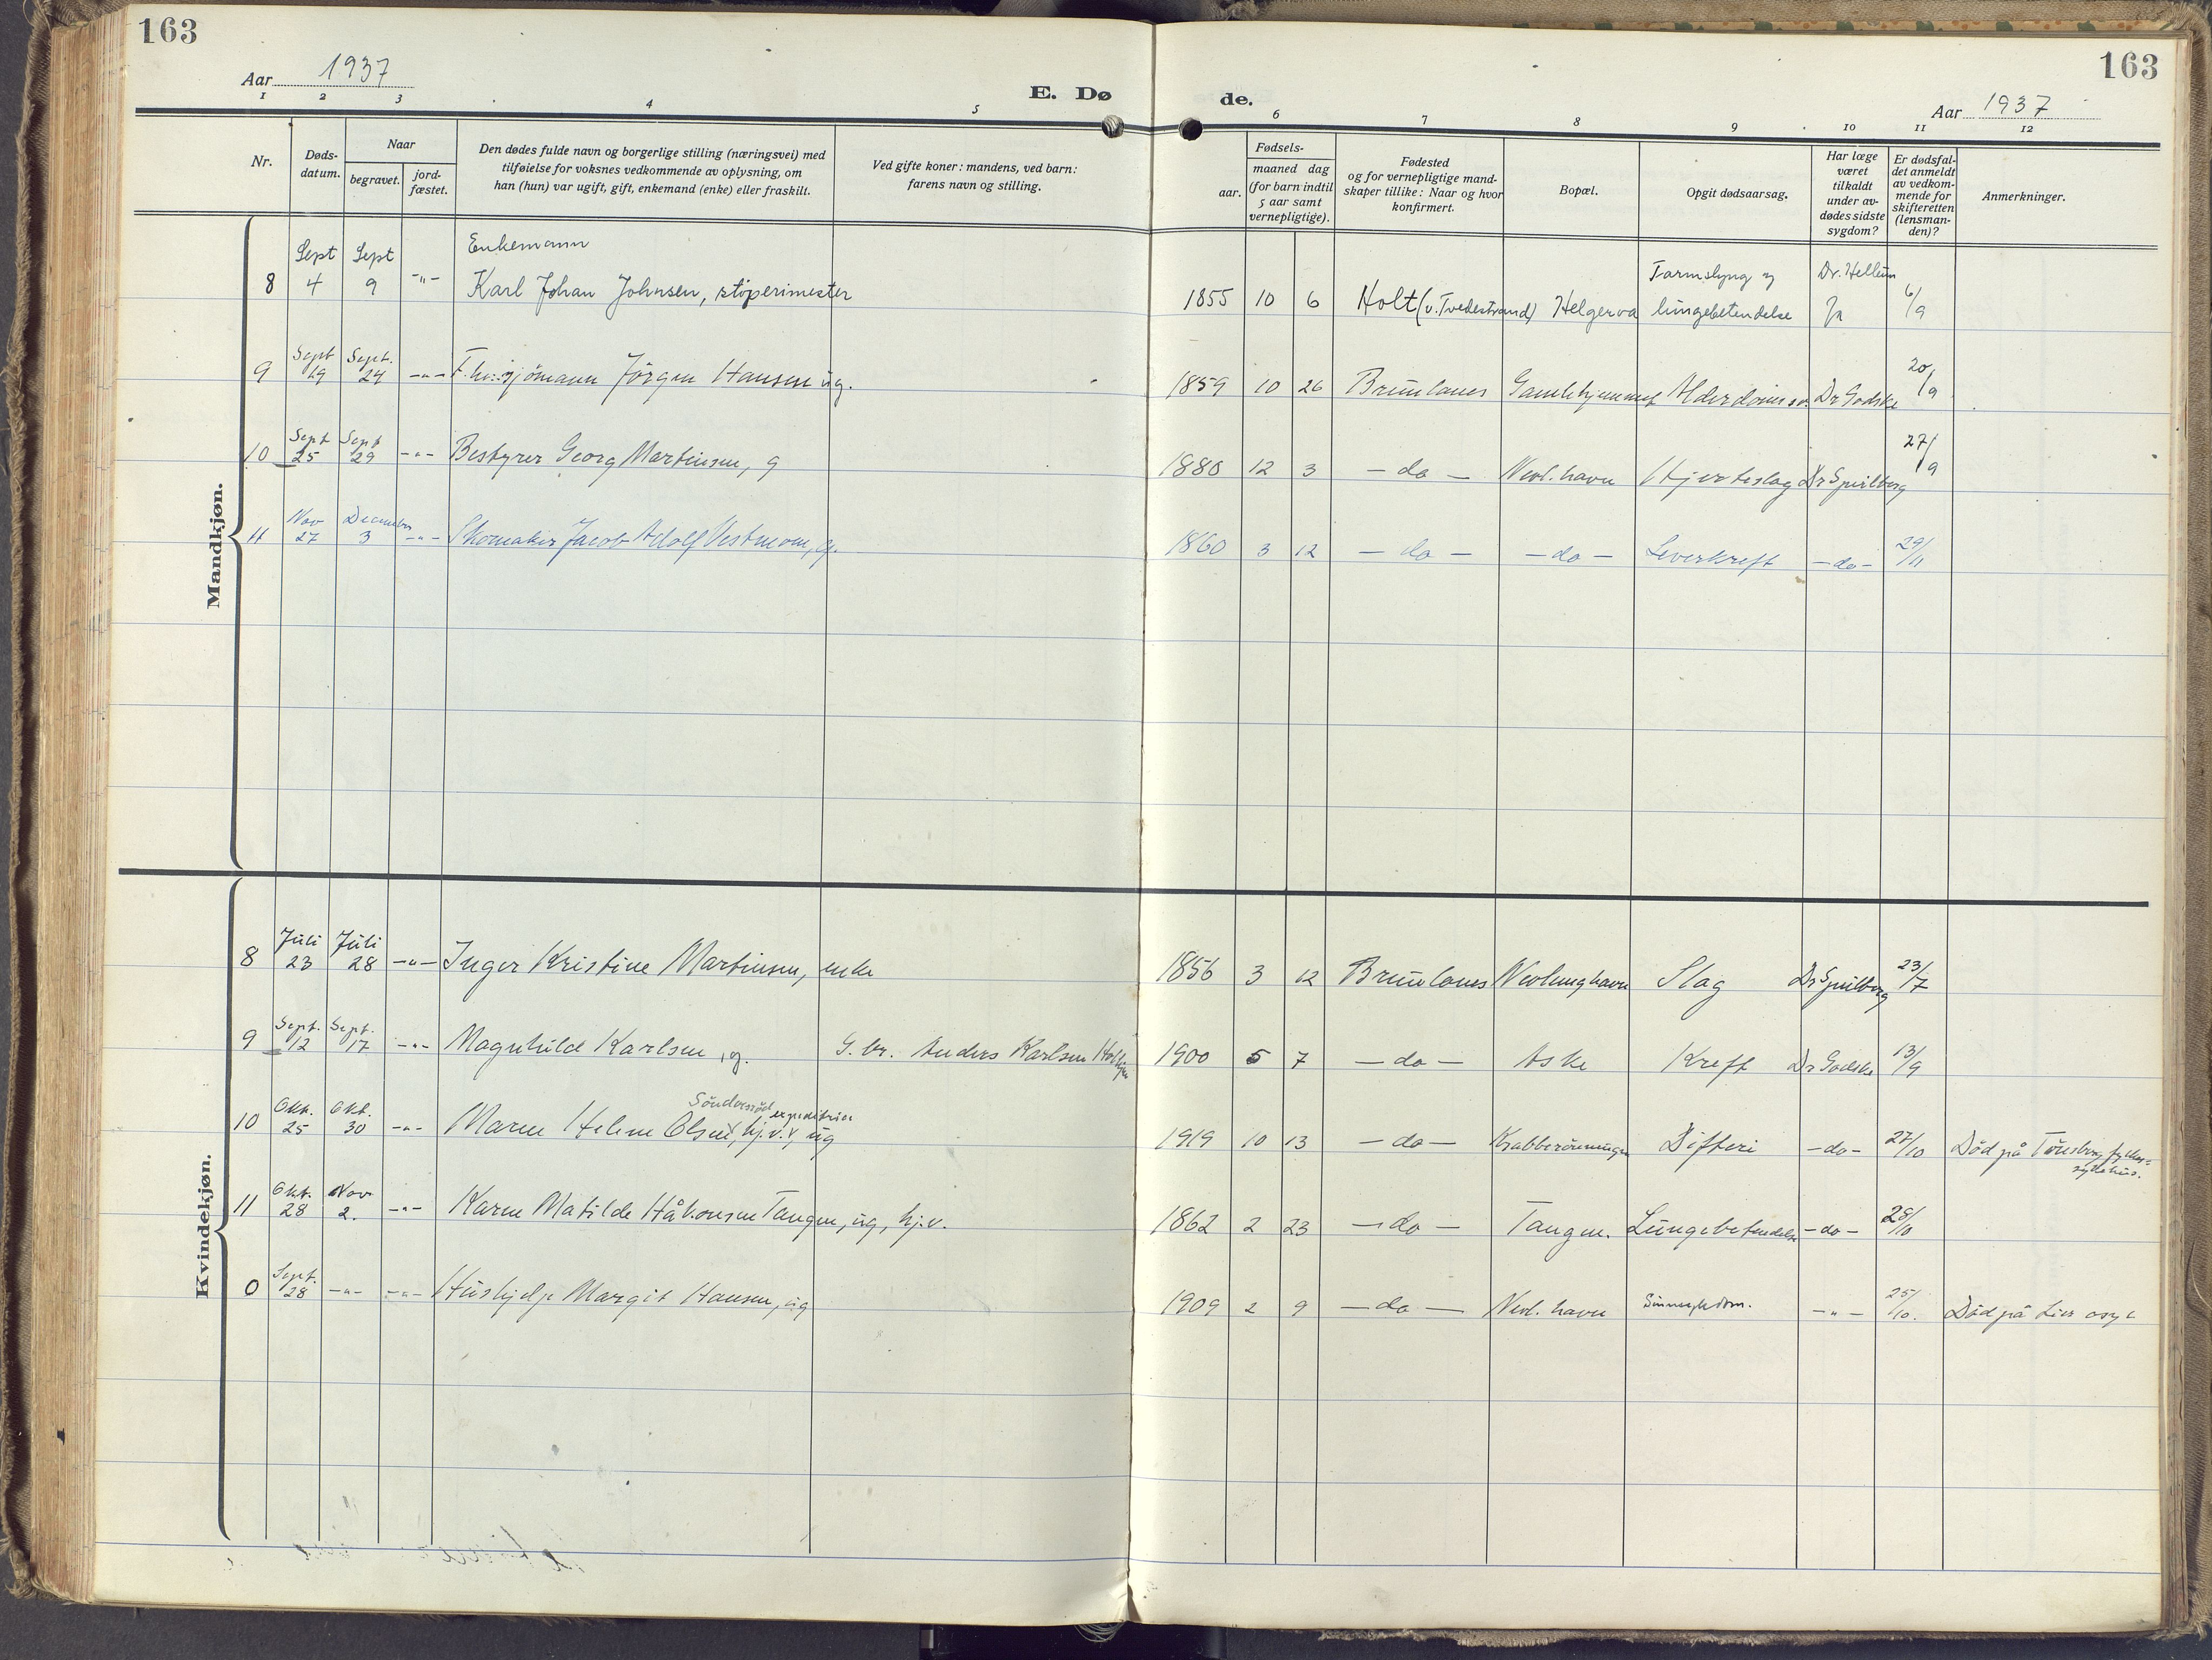 163
163
Aar 1937
E. Dø
de.
Aar 1937
1 2 3 4 5 6 7 8 9 10 11 12
Nr.
Døds-
datum.
Naar
begravet.
jord-
fæstet.
Den dødes fulde navn og borgerlige stilling (næringsvei) med
tilføielse for voksnes vedkommende av oplysning, om
han (hun) var ugift, gift, enkemand (enke) eller fraskilt.
Ved gifte koner: mandens, ved barn:
farens navn og stilling.
Fødsels-
aar.
maaned dag
(for barn indtil
5 aar samt
vernepligtige).
Fødested
og for vernepligtige mand-
skaper tillike: Naar og hvor
konfirmert.
Bopæl.
Opgit dødsaarsag.
Har læge
været
tilkaldt
under av-
dødes sidste
sygdom?
Er dødsfal-
det anmeldt
av vedkom-
mende for
skifteretten
(lensman-
den)?
Anmerkninger.
Mandkjøn.
Sept Sept Enkemann Tarmslyng og Dr. Hellum
8 4 9 -"- Karl Johan Johnsen, støperimester 1855 10 6 Holt (v. Tvedestrand) Helgeroa lungebetendelse Ja 6/9
Sept Sept.
9 19 24 -"- sjömann Jörgen Hansen ug. 1859 10 26 Brunlanes Gamlehjemmet Dr Godske 20/9
Sept Sept
10 25 29 -"- Bestyrer Georg Martinsen, g 1880 12 3 - do - Nevl. havn Hjerteslag Dr Spilberg 27/9
Nov December
11 27 3 -"- Skomaker Jacob Adolf Vestmom, g. 1860 3 12 - do - - do - Leverkreft - do - 29/11
Kvindekjøn.
Juli Juli
8 23 28 -"- Inger Kristine Martinsen, enke 1856 3 12 Brunlanes Nevlunghavn Slag Dr Spilberg 23/7
Sept. Sept.
9 12 17 -"- Magnhild Karlsen, g. G. br. Anders Karlsen 1900 5 7 - do - Aske Kreft Dr Godske 13/9
Okt. Okt. Söndersröd expeditrice
10 25 30 -"- Maren Helene Olsen, hj.v., ug 1919 10 13 - do - Krabberönningen Difteri - do - 27/10 Död på Tönsberg fylkes-
sykehus.
Okt. Nov.
11 28 2. -"- Karen Matilde Håkonsen Tangen, ug, hj.v. 1862 2 23 - do - Tangen. Lungebetendelse - do - 28/10
Sept.
0 28 -"- -"- Hushjelp Margit Hansen, ug 1909 2 9 - do - Nevl. havn Sinnsykdom. -"- 25/10. Död på Lier asyl